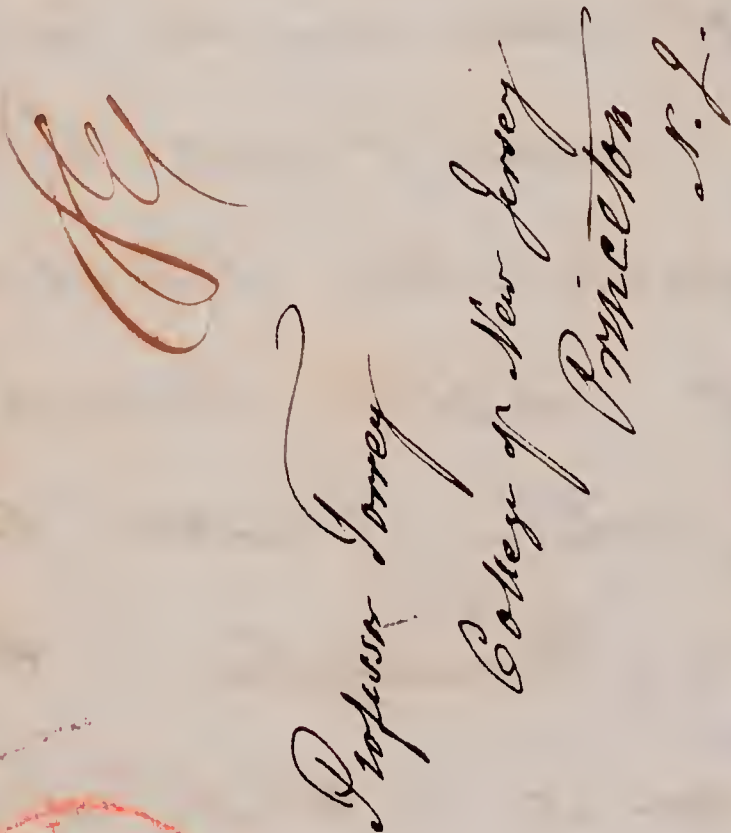 Professor Torrey
College of New Jersey
Princeton
N. J.